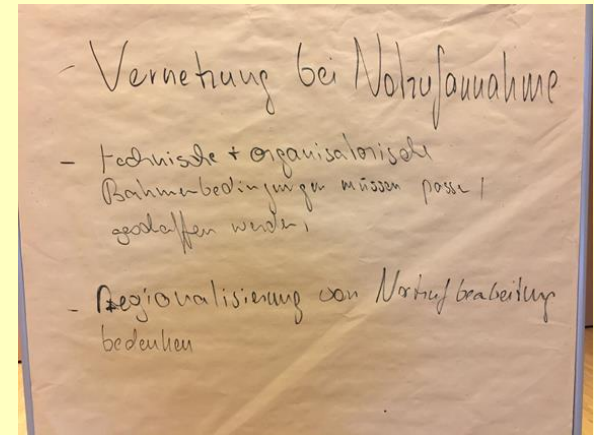 - Vernetzung bei Notrufannahme
- technische + organisatorische
Rahmenbedingungen müssen passen /
geschaffen werden,
- Regionalisierung von Notrufbearbeitung
bedenken